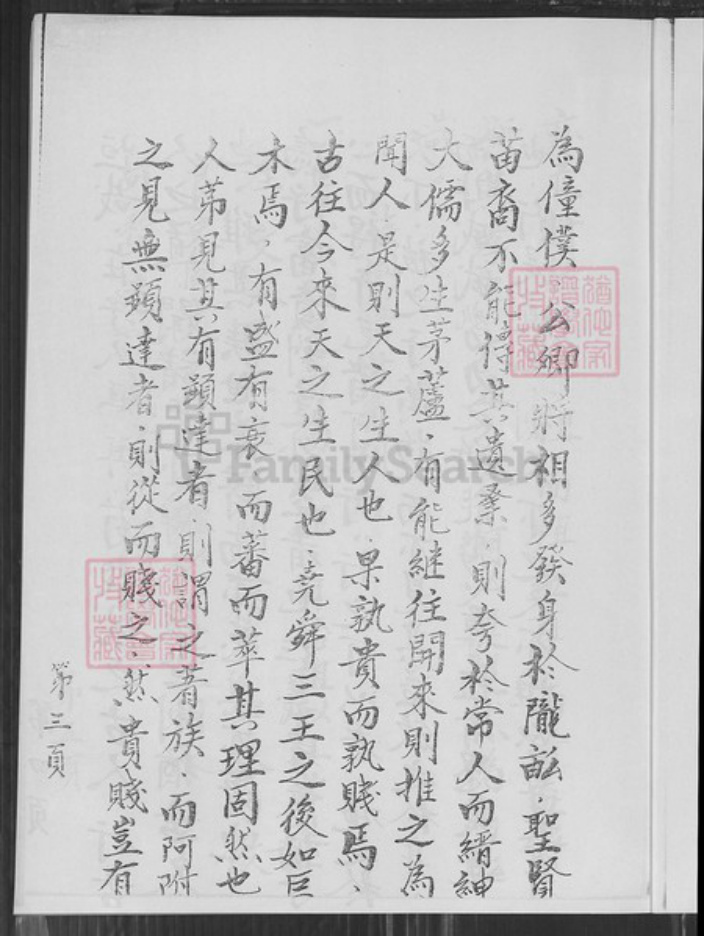 為僮僕 公卿將相多發身於隴畝．聖賢
苗裔不能傳其遺業．則夸於常人而縉紳
大儒多生茅蘆．有能継往開來則推之為
聞人 是則天之生人也．果孰貴而孰賤焉、
古往今來天之生民也．堯舜三王之後如巨
木焉，有盛有衰 而蕃而萃其理固然也
人苐見其有顕達者．則謂之著族．而阿附
之見無顕達者．則從而賤之．然貴賤豈有
第三頁
FamilySearch